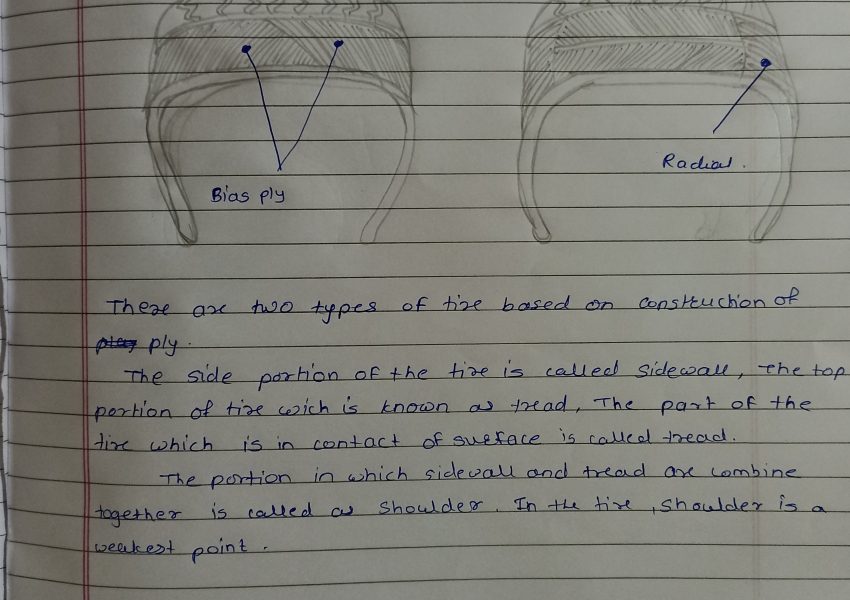 Bias ply
Radial.
There are two types of tire based on construction of
ply.
The side portion of the tire is called sidewall, The top
portion of tire wich is known as tread, The part of the
tire which is in contact of surface is called tread.
The portion in which sidevall and tread are combine
together is called as shoulder. In the tire, shoulder is a
weakest point.